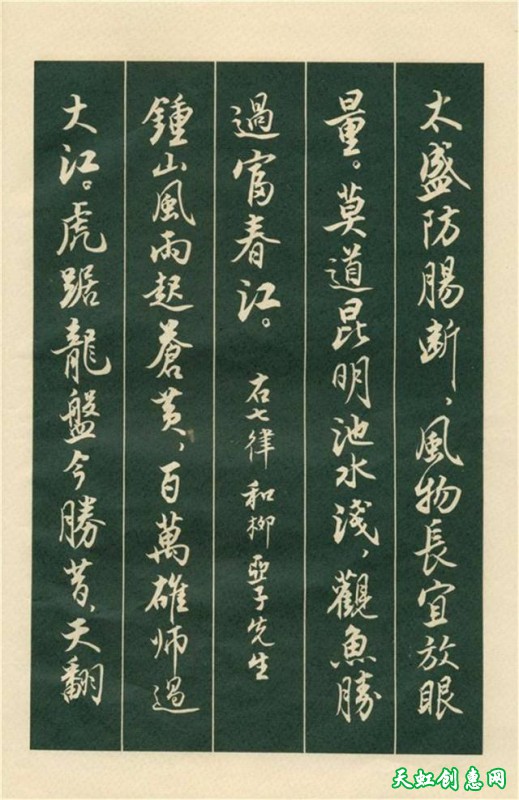 太盛防腸斷，風物長宜放眼
量。莫道昆明池水淺，觀魚勝
過富春江。 右七律 和柳亞子先生
鍾山風雨起蒼黃，百萬雄师過
大江。虎踞龍盤今勝昔，天翻
天虹创惠网